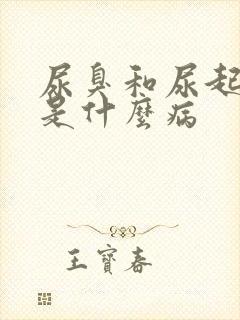 尿臭和尿起
是什麼病
王寶春